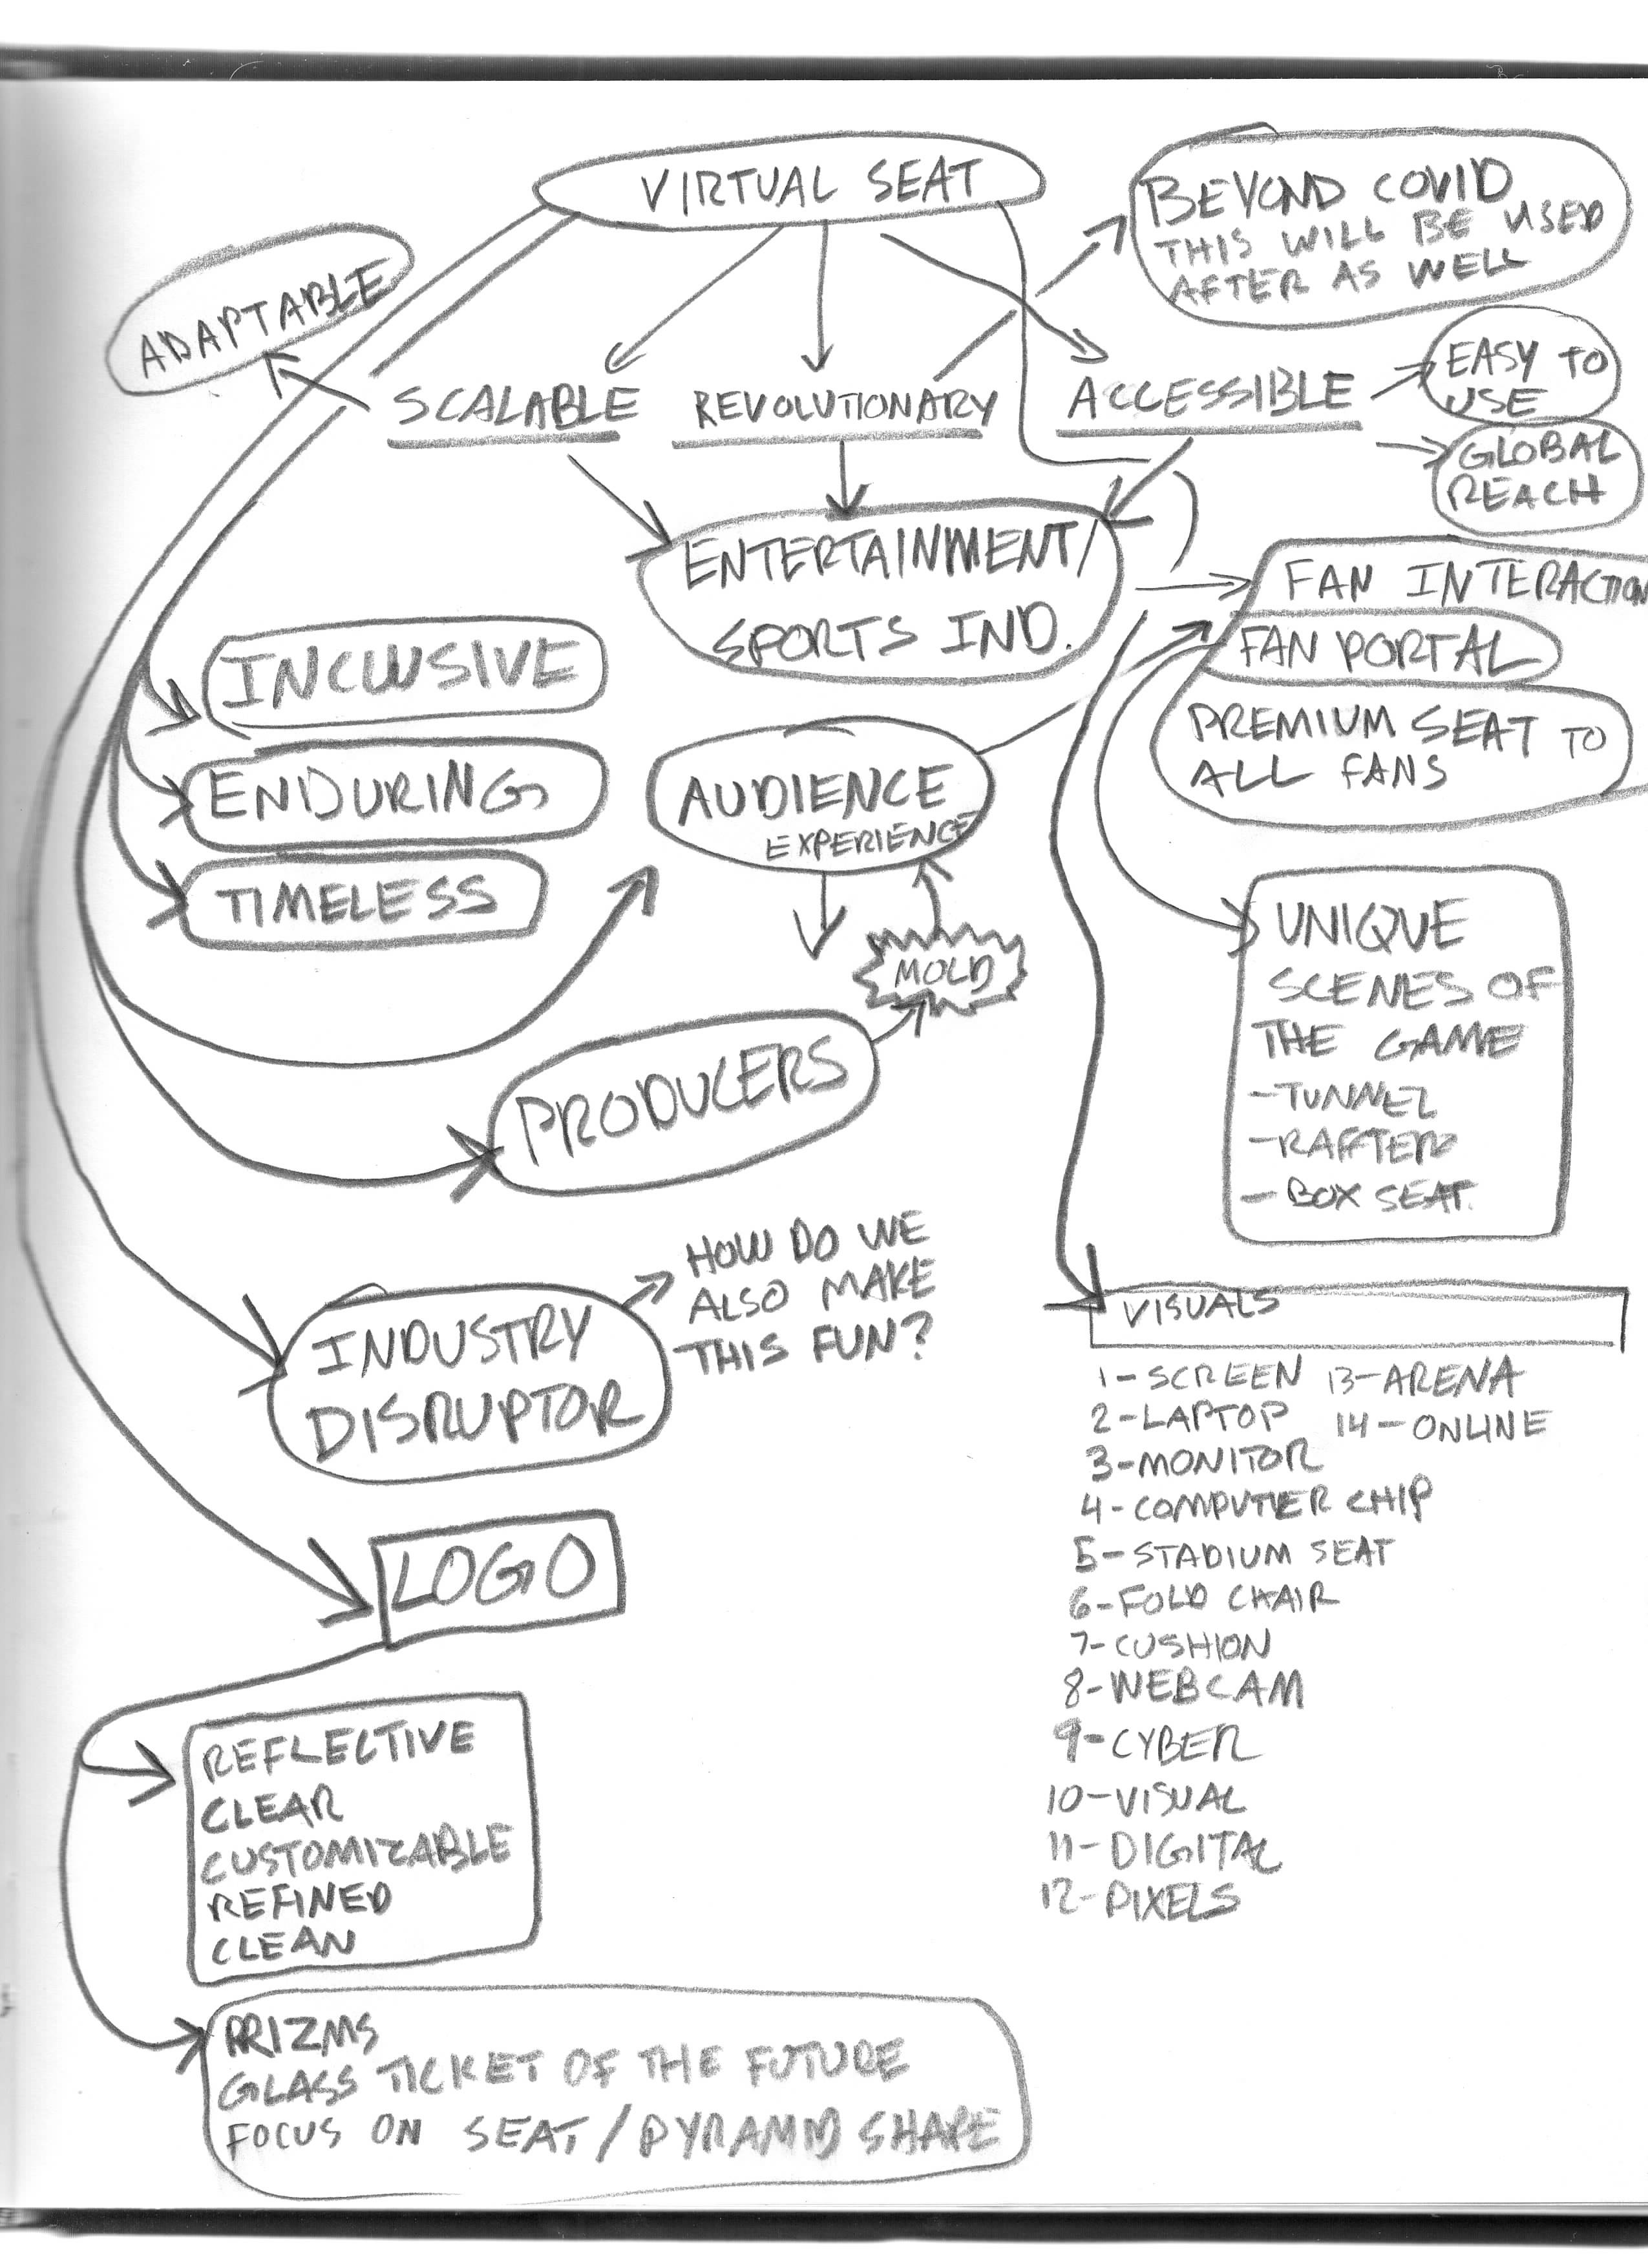 VIRTUAL SEAT
BEYOND COVID
THIS WILL BE USED
AFTER AS WELL
ADAPTABLE
SCALABLE
REVOLUTIONARY
ACCESSIBLE
EASY TO
USE
GLOBAL
REACH
ENTERTAINMENT/
SPORTS IND.
FAN INTERACTION
FAN PORTAL
PREMIUM SEAT TO
ALL FANS
INCLUSIVE
ENDURING
TIMELESS
AUDIENCE
EXPERIENCE
MOLD
PRODUCERS
UNIQUE
SCENES OF
THE GAME
-TUNNEL
-RAFTERS
- BOX SEAT.
INDUSTRY
DISRUPTOR
HOW DO WE
ALSO MAKE
THIS FUN?
VISUALS
1-SCREEN
2-LAPTOP
3-MONITOR
4-COMPUTER CHIP
5-STADIUM SEAT
6-FOLD CHAIR
7-CUSHION
8-WEBCAM
9-CYBER
10-VISUAL
11-DIGITAL
12-PIXELS
13-ARENA
14-ONLINE
LOGO
REFLECTIVE
CLEAR
CUSTOMIZABLE
REFINED
CLEAN
PRIZMS
GLASS TICKET OF THE FUTURE
FOCUS ON SEAT/PYRAMID SHAPE